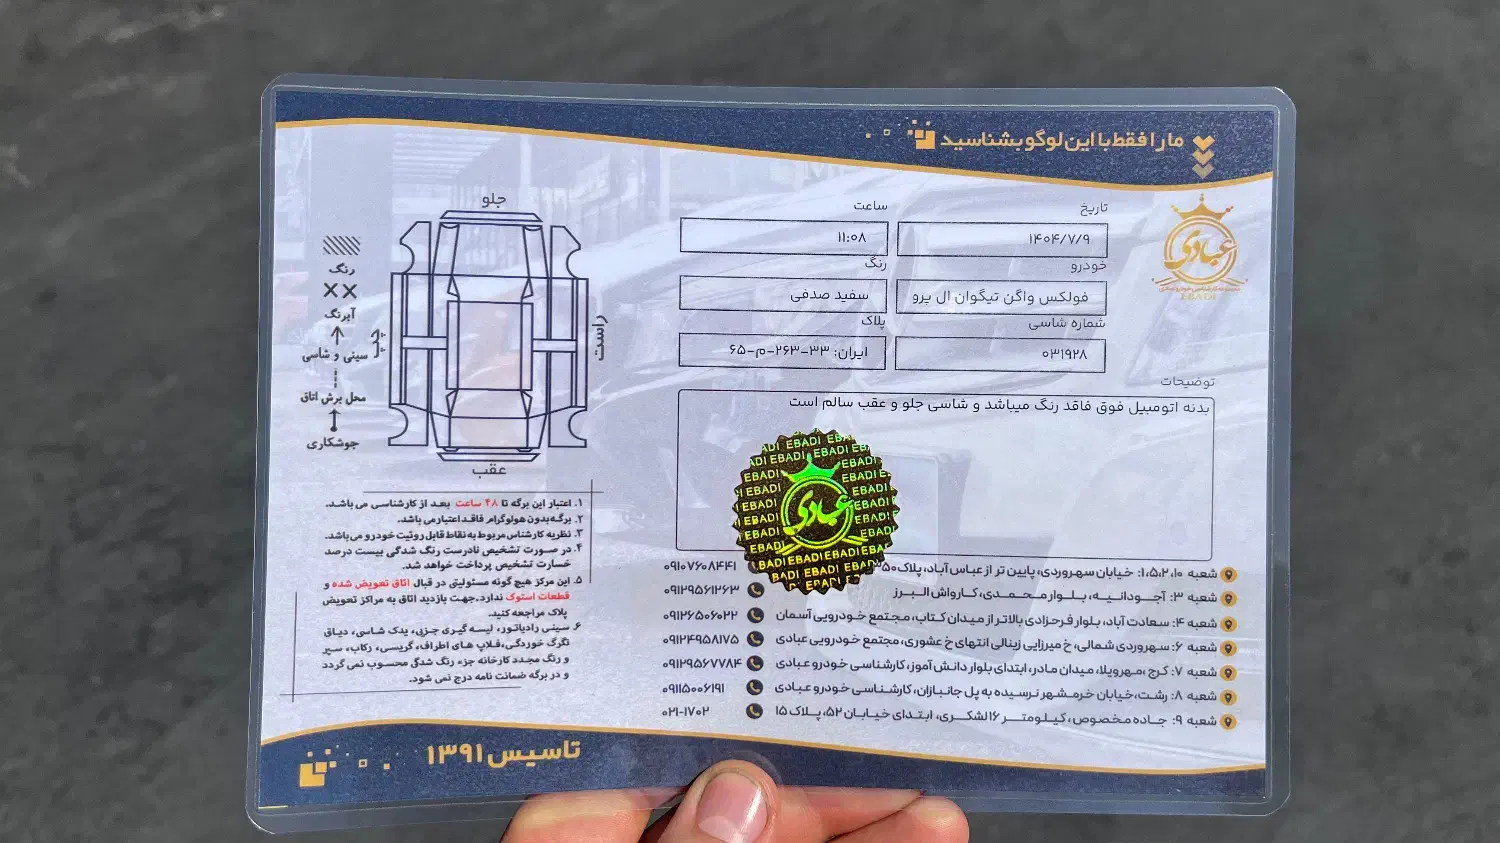 ما را فقط با این لوگو بشناسید
عبادی
EBADI
تاریخ
۱۴۰۴/۷/۹
ساعت
۱۱:۰۸
خودرو
فولکس واگن تیگوان ال پرو
رنگ
سفید صدفی
شماره شاسی
۰۳۱۹۲۸
پلاک
ایران: ۳۳-۲۶۳-م-۶۵
توضیحات
بدنه اتومبیل فوق فاقد رنگ میباشد و شاسی جلو و عقب سالم است
جلو
راست
چپ
عقب
رنگ
آبرنگ
سینی و شاسی
محل برش اتاق
جوشکاری
۱. اعتبار این برگه تا ۴۸ ساعت بعد از کارشناسی می باشد.
۲. برگه بدون هولوگرام فاقد اعتبار می باشد.
۳. نظریه کارشناس مربوط به نقاط قابل روئیت خودرو می باشد.
۴. در صورت تشخیص نادرست رنگ شدگی بیست درصد
خسارت تشخیص پرداخت خواهد شد.
۵. این مرکز هیچ گونه مسئولیتی در قبال اتاق تعویض شده و
قطعات استوک ندارد. جهت بازدید اتاق به مراکز تعویض
پلاک مراجعه کنید.
۶. سینی رادیاتور، لیسه گیری جزیی، یدک شاسی، دیاق
تگرگ خوردگی، فلاپ های اطراف، گریسی، رکاب، سپر
و رنگ مجدد کارخانه جزء رنگ شدگی محسوب نمی گردد
و در برگه ضمانت نامه درج نمی شود.
عبادی
EBADI
شعبه ۱،۵،۲،۱۰: خیابان سهروردی، پایین تر از عباس آباد، پلاک ۳۵۰
۰۹۱۰۷۶۰۸۴۴۱
شعبه ۳: آجودانیه، بلوار محمدی، کارواش البرز
۰۹۱۲۹۵۶۱۲۶۳
شعبه ۴: سعادت آباد، بلوار فرحزادی بالاتر از میدان کتاب، مجتمع خودرویی آسمان
۰۹۱۲۶۵۰۶۰۲۲
شعبه ۶: سهروردی شمالی، خ میرزایی زینالی انتهای خ عشوری، مجتمع خودرویی عبادی
۰۹۱۲۴۹۵۸۱۷۵
شعبه ۷: کرج، مهرویلا، میدان مادر، ابتدای بلوار دانش آموز، کارشناسی خودرو عبادی
۰۹۱۲۹۵۶۷۷۸۴
شعبه ۸: رشت، خیابان خرمشهر نرسیده به پل جانبازان، کارشناسی خودرو عبادی
۰۹۱۱۵۰۰۶۱۹۱
شعبه ۹: جاده مخصوص، کیلومتر ۱۶ لشکری، ابتدای خیابان ۵۲، پلاک ۱۵
۰۲۱-۱۷۰۲
تاسیس ۱۳۹۱